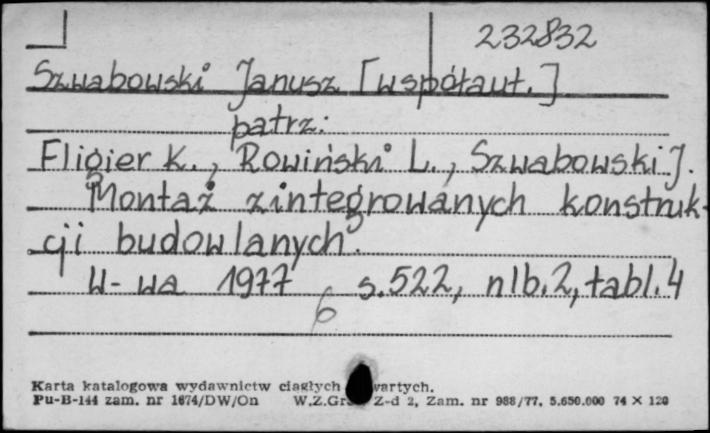 232832
Szwabowski Janusz [współaut.]
patrz:
Fligier K., Rowiński L., Szwabowski J.
Montaż zintegrowanych konstruk-
cji budowlanych.
W-wa 1977 s.522, nlb.2, tabl.4
6
Karta katalogowa wydawnictw ciągłych wartych.
Pu-B-144 zam. nr 1674/DW/On W.Z.Gr Z-d 2, Zam. nr 988/77, 5.650.000 74 X 120